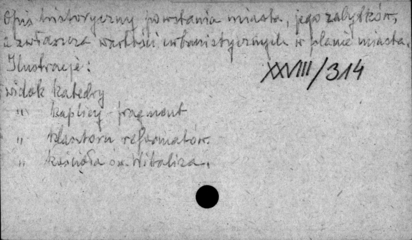 Opis historyczny powstania miasta, jego zabytków,
a zwłaszcza wartości urbanistycznych w planie miasta.
Ilustracje:
XXVIII/314
widok katedry
" kaplicy - fragment
" klasztoru reformatów.
" kościoła św. Witalisa.